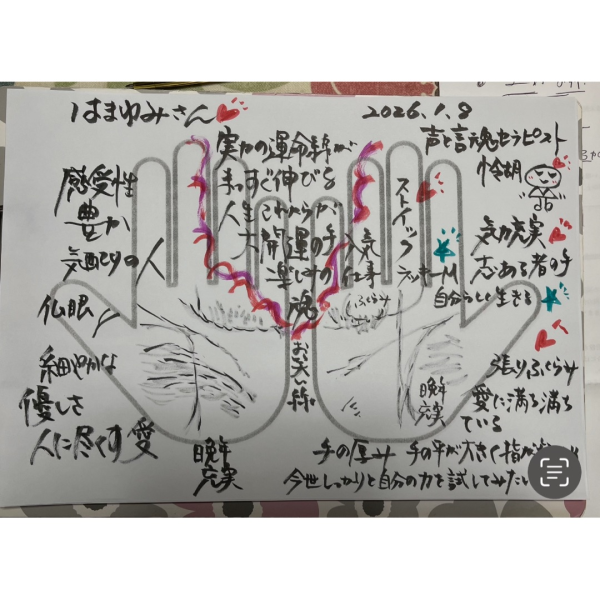 はまゆみさん
2026.1.8
声と言魂セラピスト
怜胡
実力の運命線が
まっすぐ伸びる
人生これからが
大開運の手
楽しみの
魂
感受性
豊か
気配りの人
仏眼
細やかな
優しさ
人に尽くす愛
晩年
充実
お天い線
ストイック
人気
仕事
ラッキーM
ふくらみ
気力充実
志ある者の手
自分らしく生きる
張りふくらみ
愛に満ち満ち
ている
晩年
充実
手の厚み 手の平が大きく指が
今世しっかりと自分の力を試してみたい